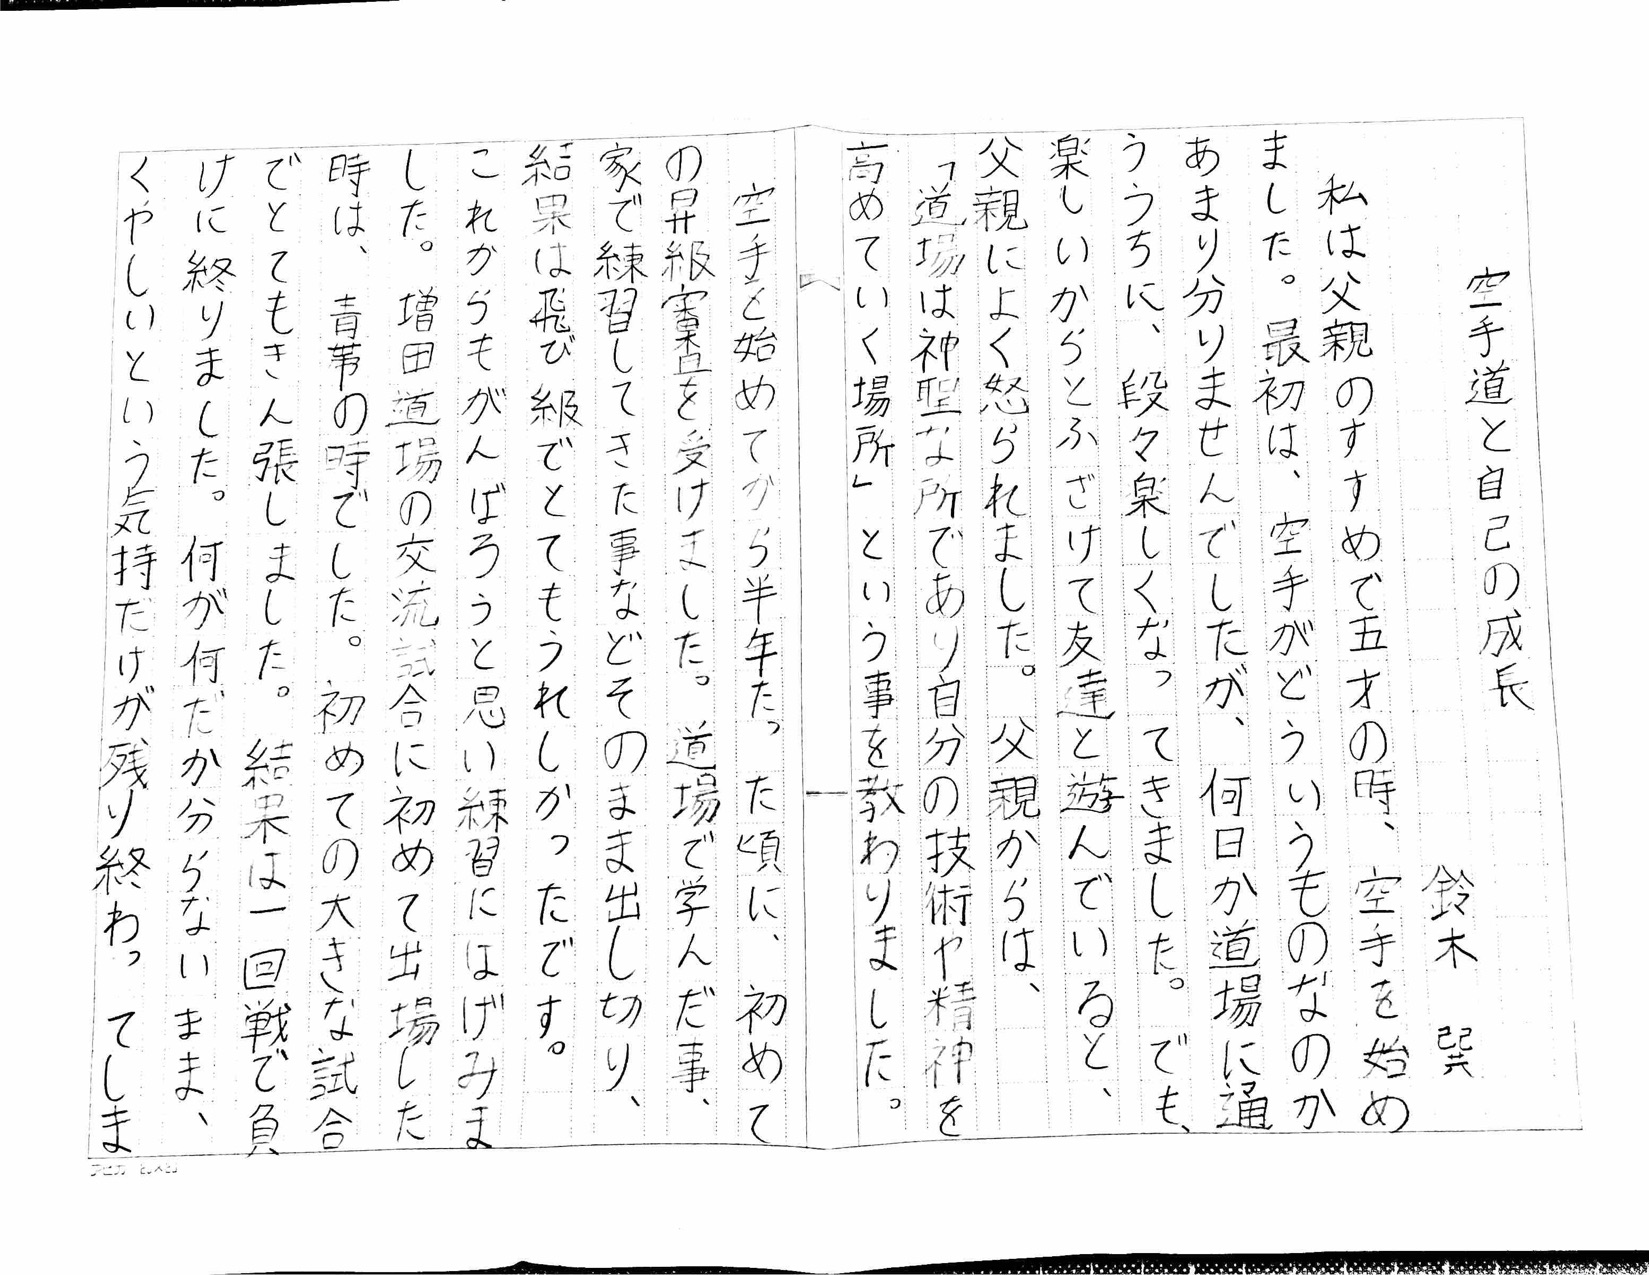 空手道と自己の成長
鈴木 巽
私は父親のすすめで五才の時、空手を始め
ました。最初は、空手がどういうものなのか
あまり分りませんでしたが、何日か道場に通
ううちに、段々楽しくなってきました。でも、
楽しいからとふざけて友達と遊んでいると、
父親によく怒られました。父親からは、
「道場は神聖な所であり自分の技術や精神を
高めていく場所」という事を教わりました。
空手を始めてから半年たった頃に、初めて
の昇級審査を受けました。道場で学んだ事、
家で練習してきた事などそのまま出し切り、
結果は飛び級でとてもうれしかったです。
これからもがんばろうと思い練習にはげみま
した。増田道場の交流試合に初めて出場した
時は、青帯の時でした。初めての大きな試合
でとてもきん張しました。結果は一回戦で負
けに終りました。何が何だか分らないまま、
くやしいという気持だけが残り終わってしま
アピカ 20×20